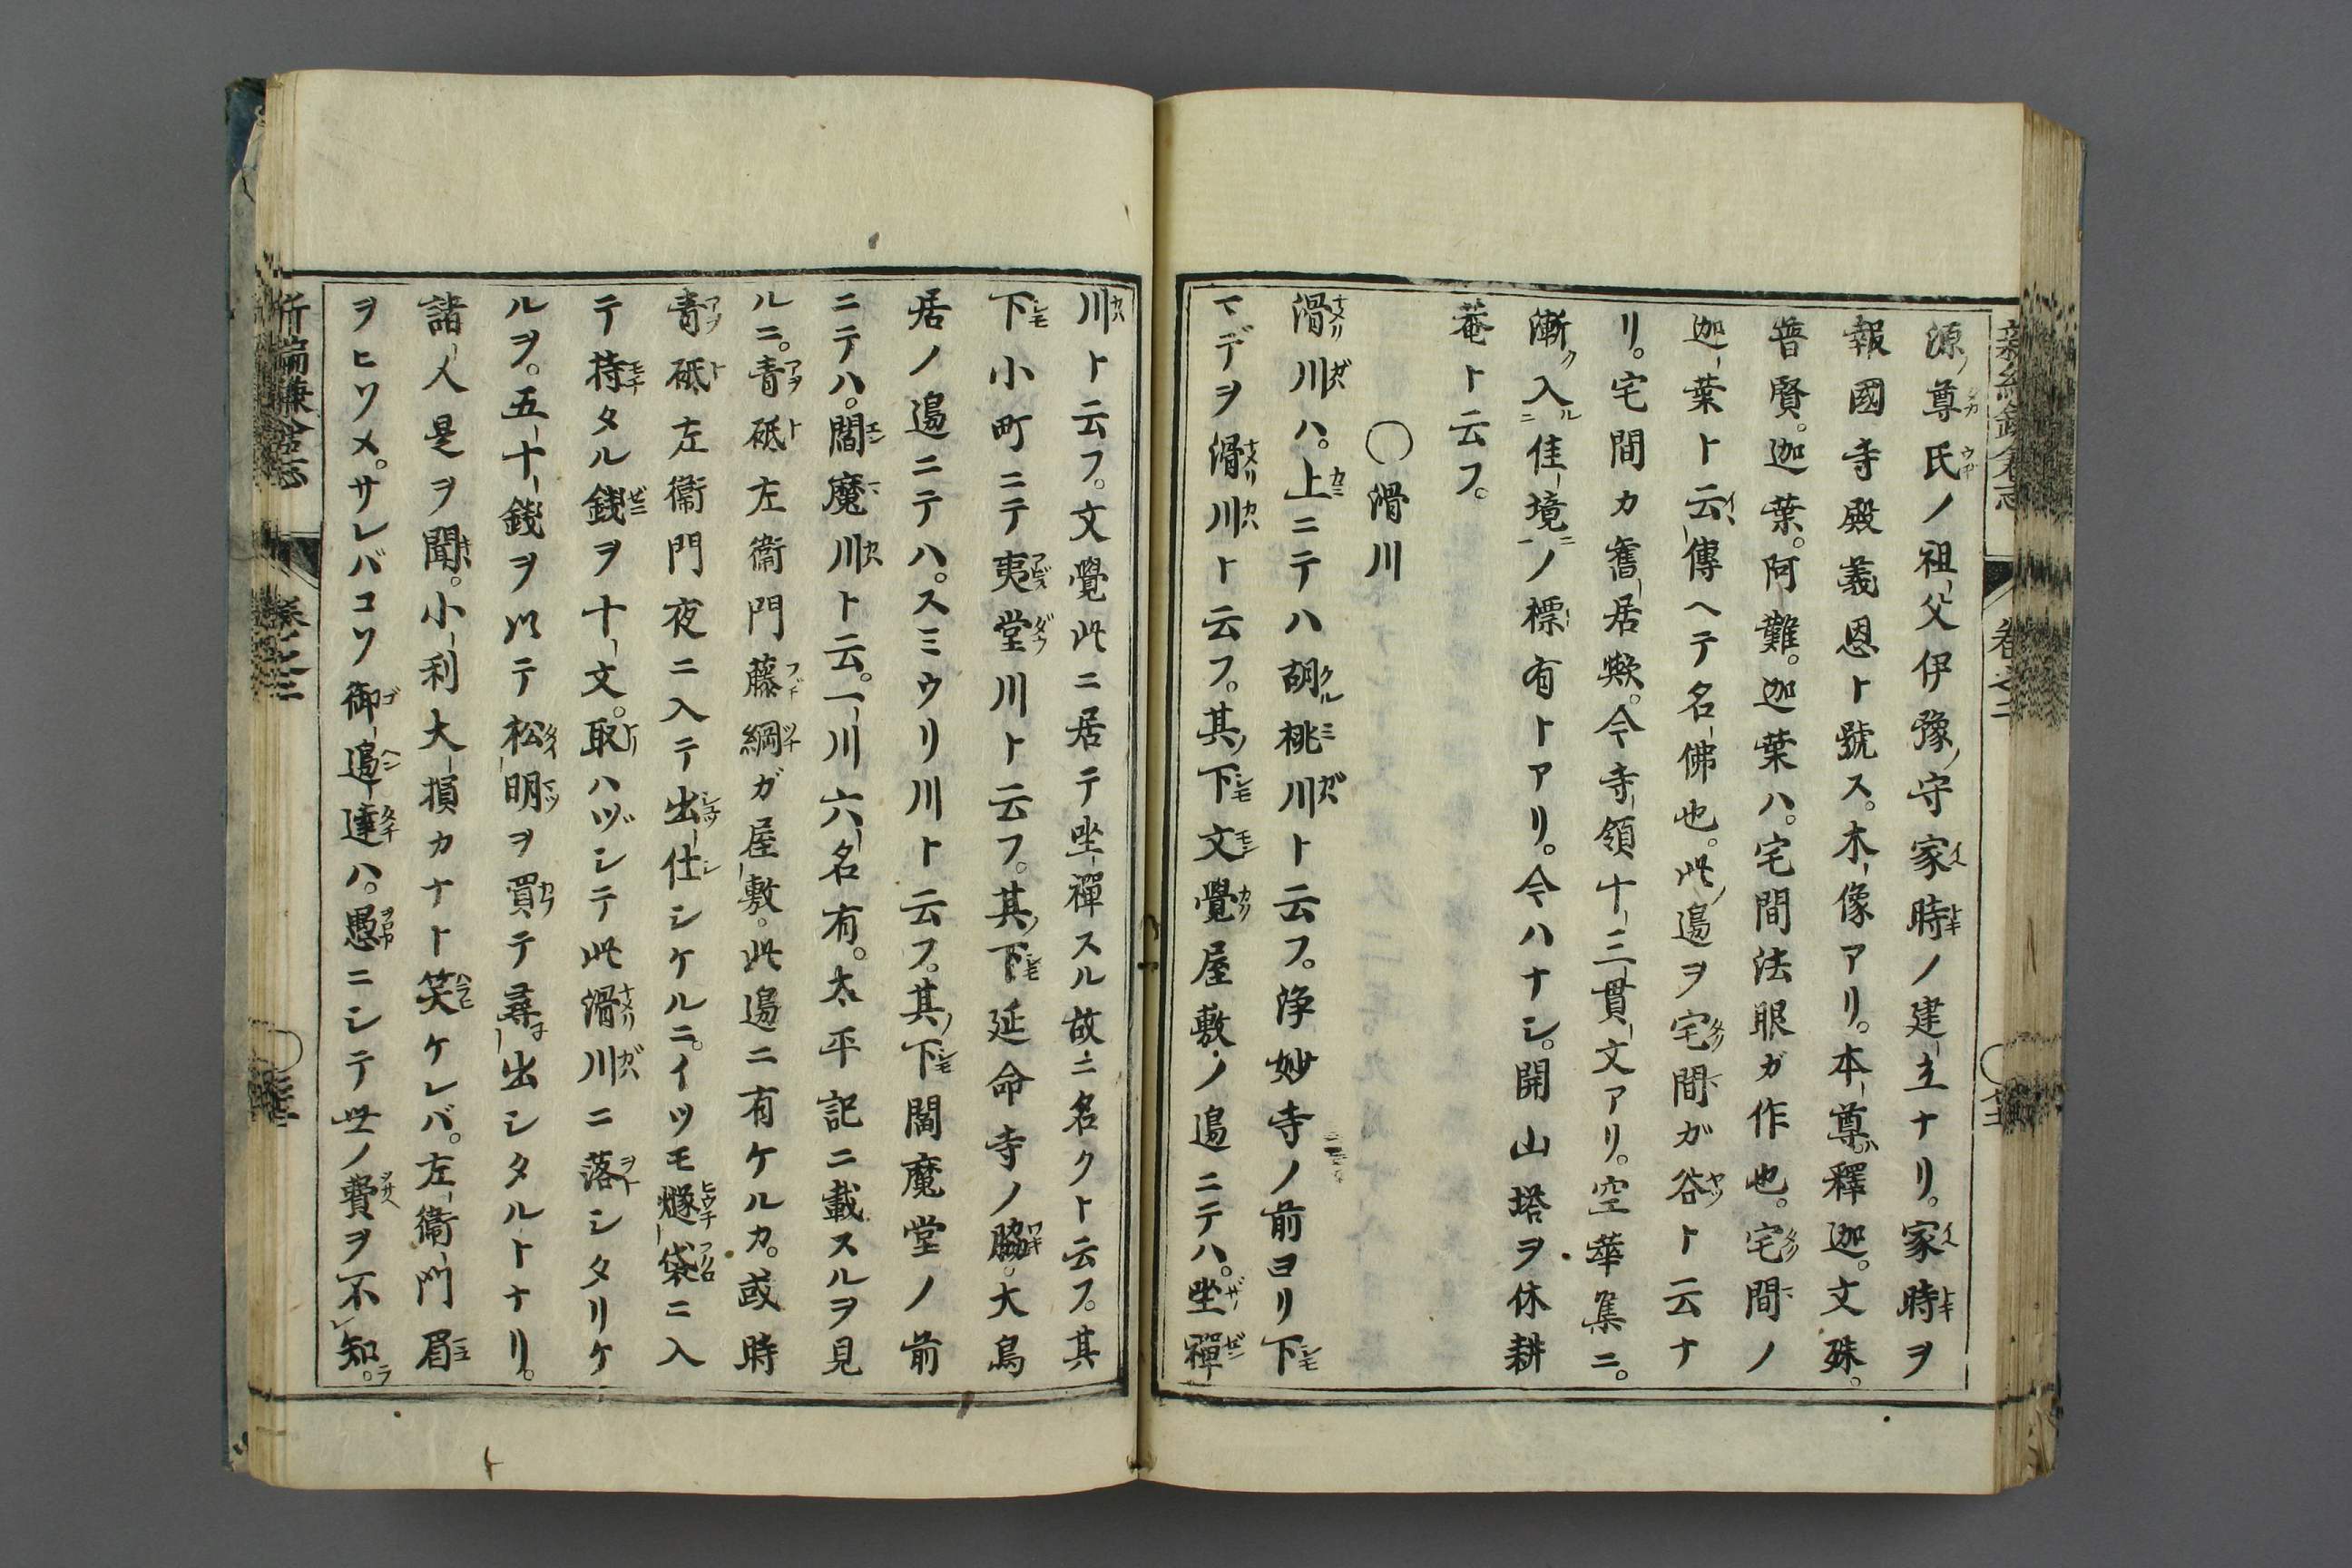 源尊氏ノ祖父伊豫守家時ノ建立ナリ。家時ヲ
報國寺殿義恩ト號ス。木像アリ。本尊ハ釋迦。文殊。
普賢。迦葉。阿難。迦葉ハ。宅間法眼ガ作也。宅間ノ
迦葉ト云傳ヘテ名佛也。此邉ヲ宅間ガ谷ト云ナ
リ。宅間カ舊居歟。今寺領十三貫文アリ。空華集ニ。
漸ク入ル佳境ニノ標有トアリ。今ハナシ。開山塔ヲ休耕
菴ト云フ。
○滑川
滑川ハ。上ニテハ胡桃川ト云フ。浄妙寺ノ前ヨリ下
マデヲ滑川ト云フ。其下文覺屋敷ノ邉ニテハ。坐禪
川ト云フ。文覺此ニ居テ坐禪スル故ニ名クト云フ。其
下小町ニテ夷堂川ト云フ。其下延命寺ノ脇。大鳥
居ノ邉ニテハ。スミウリ川ト云フ。其下閻魔堂ノ前
ニテハ。閻魔川ト云。一川六名有。太平記ニ載スルヲ見
ルニ。青砥左衞門藤綱ガ屋敷。此邉ニ有ケルカ。或時
青砥左衞門夜ニ入テ出仕シケルニ。イツモ燧袋ニ入
テ持タル錢ヲ十文。取ハヅシテ此滑川ニ落シタリケ
ルヲ。五十錢ヲ以テ松明ヲ買テ尋出シタルトナリ。
諸人是ヲ聞。小利大損カナト笑ケレバ。左衞門眉
ヲヒソメ。サレバコソ御邉達ハ。愚ニシテ世ノ費ヲ不知ラ。